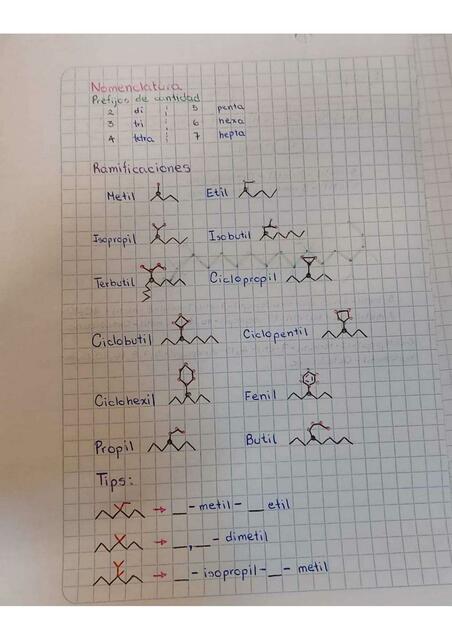 Nomenclatura
Prefijos de cantidad
2 di 5 penta
3 tri 6 hexa
4 tetra 7 hepta
Ramificaciones
Metil Etil
Isopropil Isobutil
Terbutil Ciclopropil
Ciclobutil Ciclopentil
Ciclohexil Fenil
Propil Butil
Tips:
→ __-metil-__ etil
→ __,__- dimetil
→ __-isopropil-__- metil